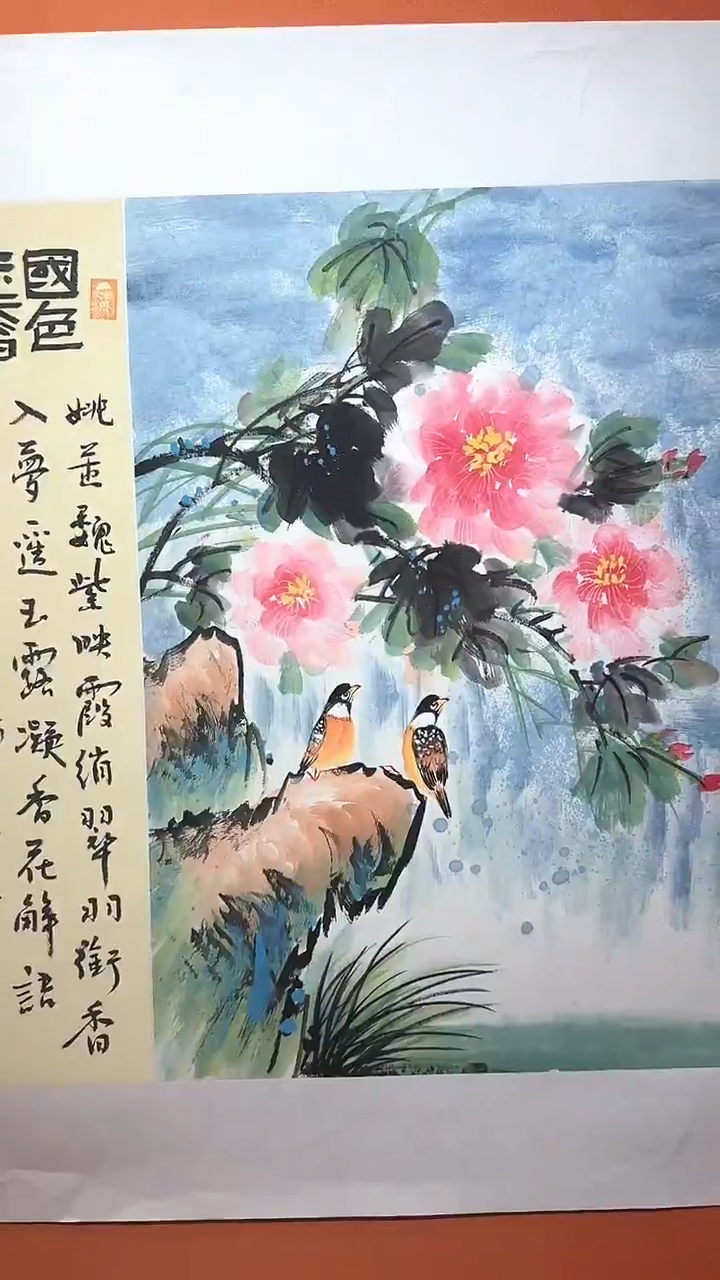 國色
天香
姚黃魏紫映霞綃翠羽銜香
入夢遥玉露凝香花解語